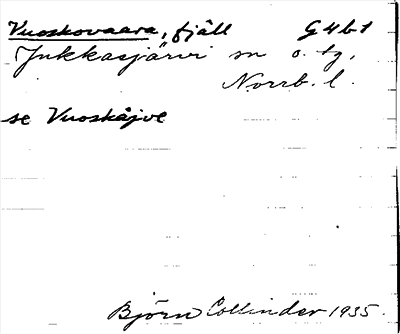 Vuoskovaara, fjäll G4b1
Jukkasjärvi sn o. tg.
Norrb. l.
se Vuoskåjve
Björn Collinder 1935.